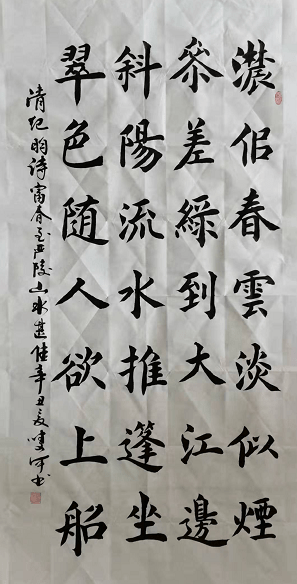 濃佀春雲淡似煙
叅差綠到大江邊
斜陽流水推篷坐
翠色随人欲上船
清纪昀诗富春至严陵山水甚佳辛丑夏书